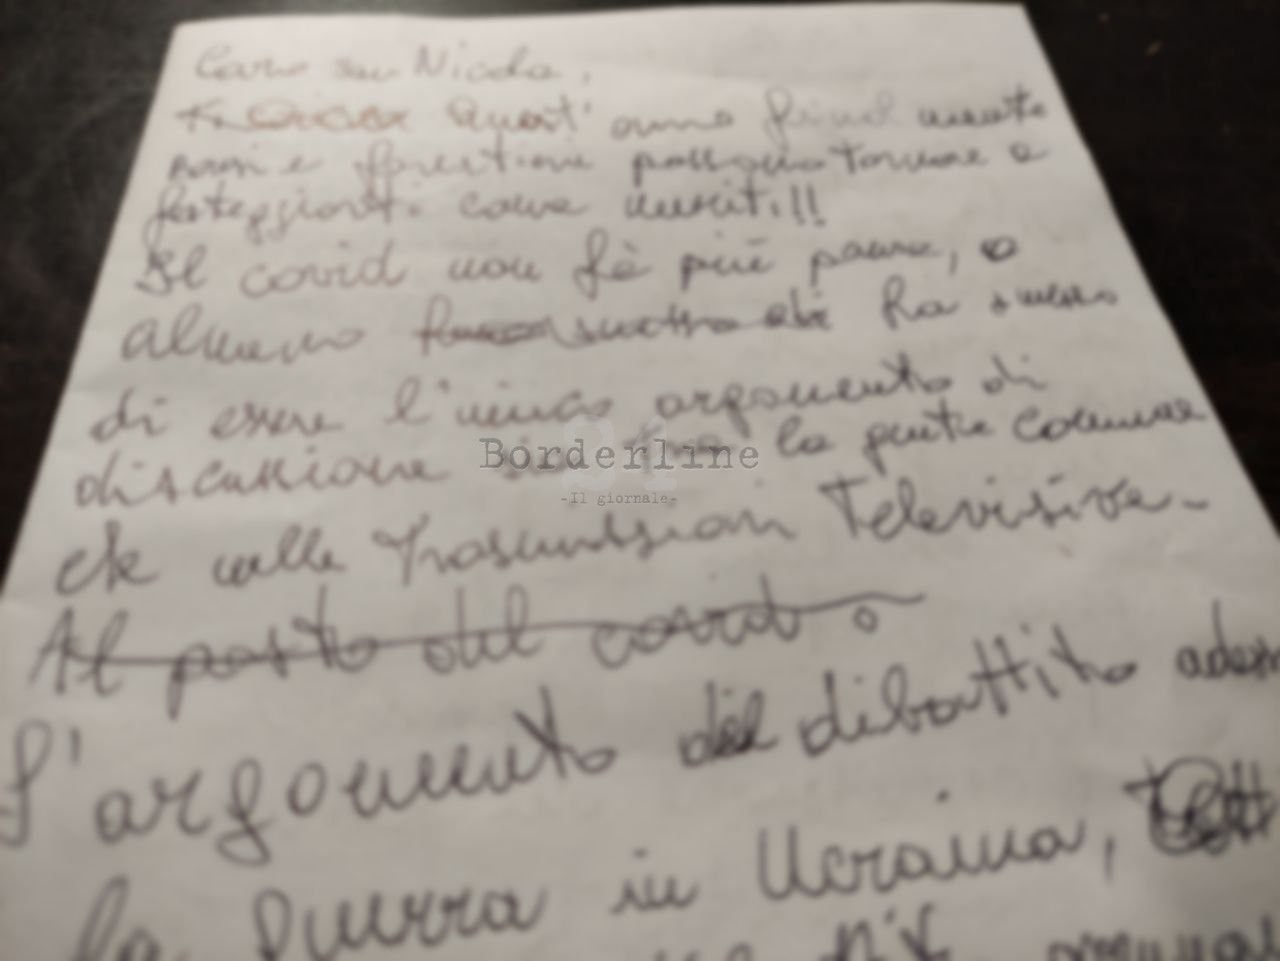 Caro san Nicola,
Quest' anno finalmente
baresi e forestieri possono tornare a
festeggiarti come meriti!!
Il covid non fà più paura, o
almeno ha smesso
di essere l'unico argomento di
discussione tra la gente comune
che nelle Trasmissioni Televisive.
Al posto del covid.
L'argomento del dibattito adesso
Borderline
-Il giornale-
la guerra in Ucraina,